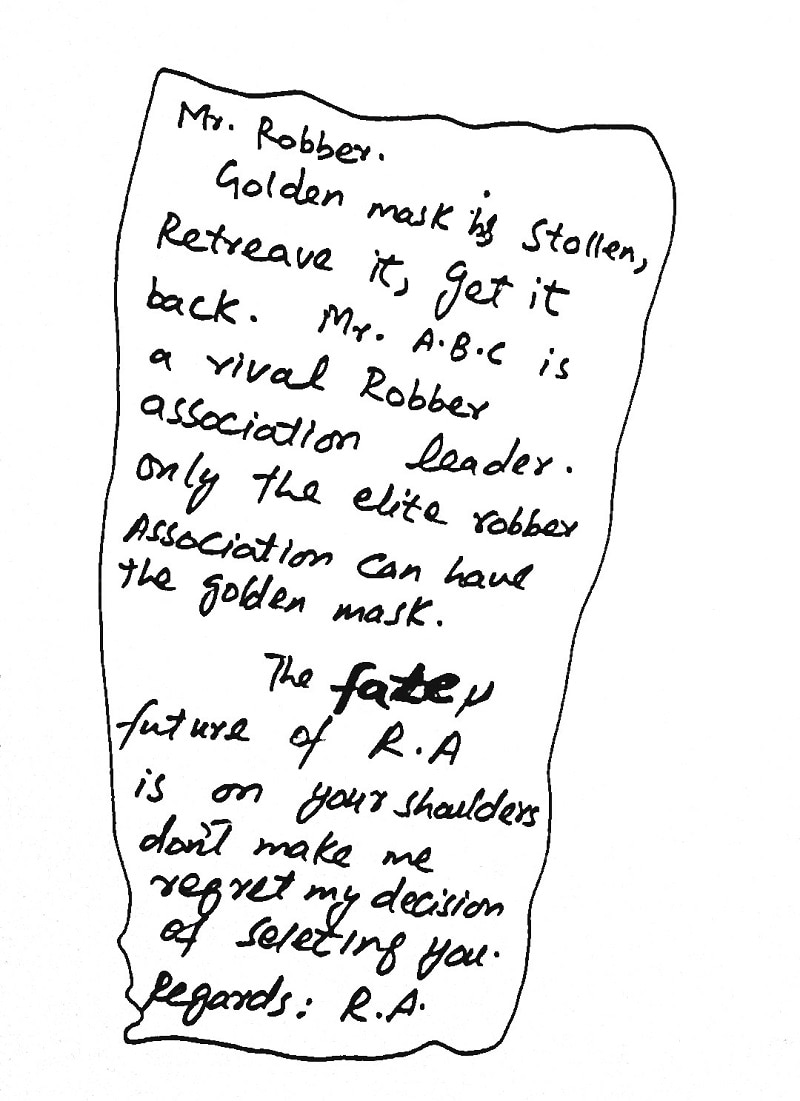 Mr. Robber.
Golden mask is Stollen,
Retreave it, get it
back. Mr. A.B.C is
a rival Robber
association leader.
only the elite robber
Association can have
the golden mask.
The fate,
future of R.A
is on your shoulders
don't make me
regret my decision
of seleting you.
Regards: R.A.